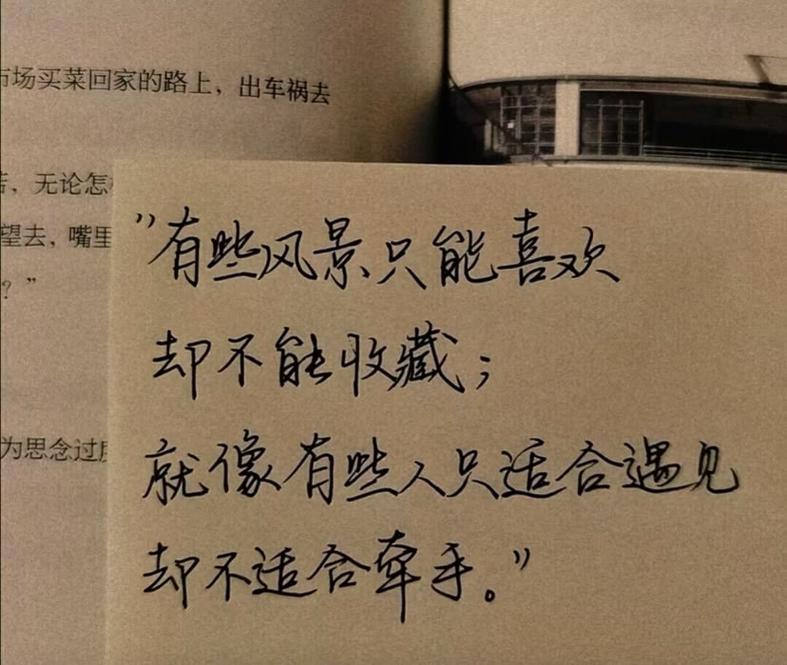 市场买菜回家的路上，出车祸去
，无论怎
望去，嘴里
？”
为思念过
"有些风景只能喜欢
却不能收藏；
就像有些人只适合遇见
却不适合牵手。"